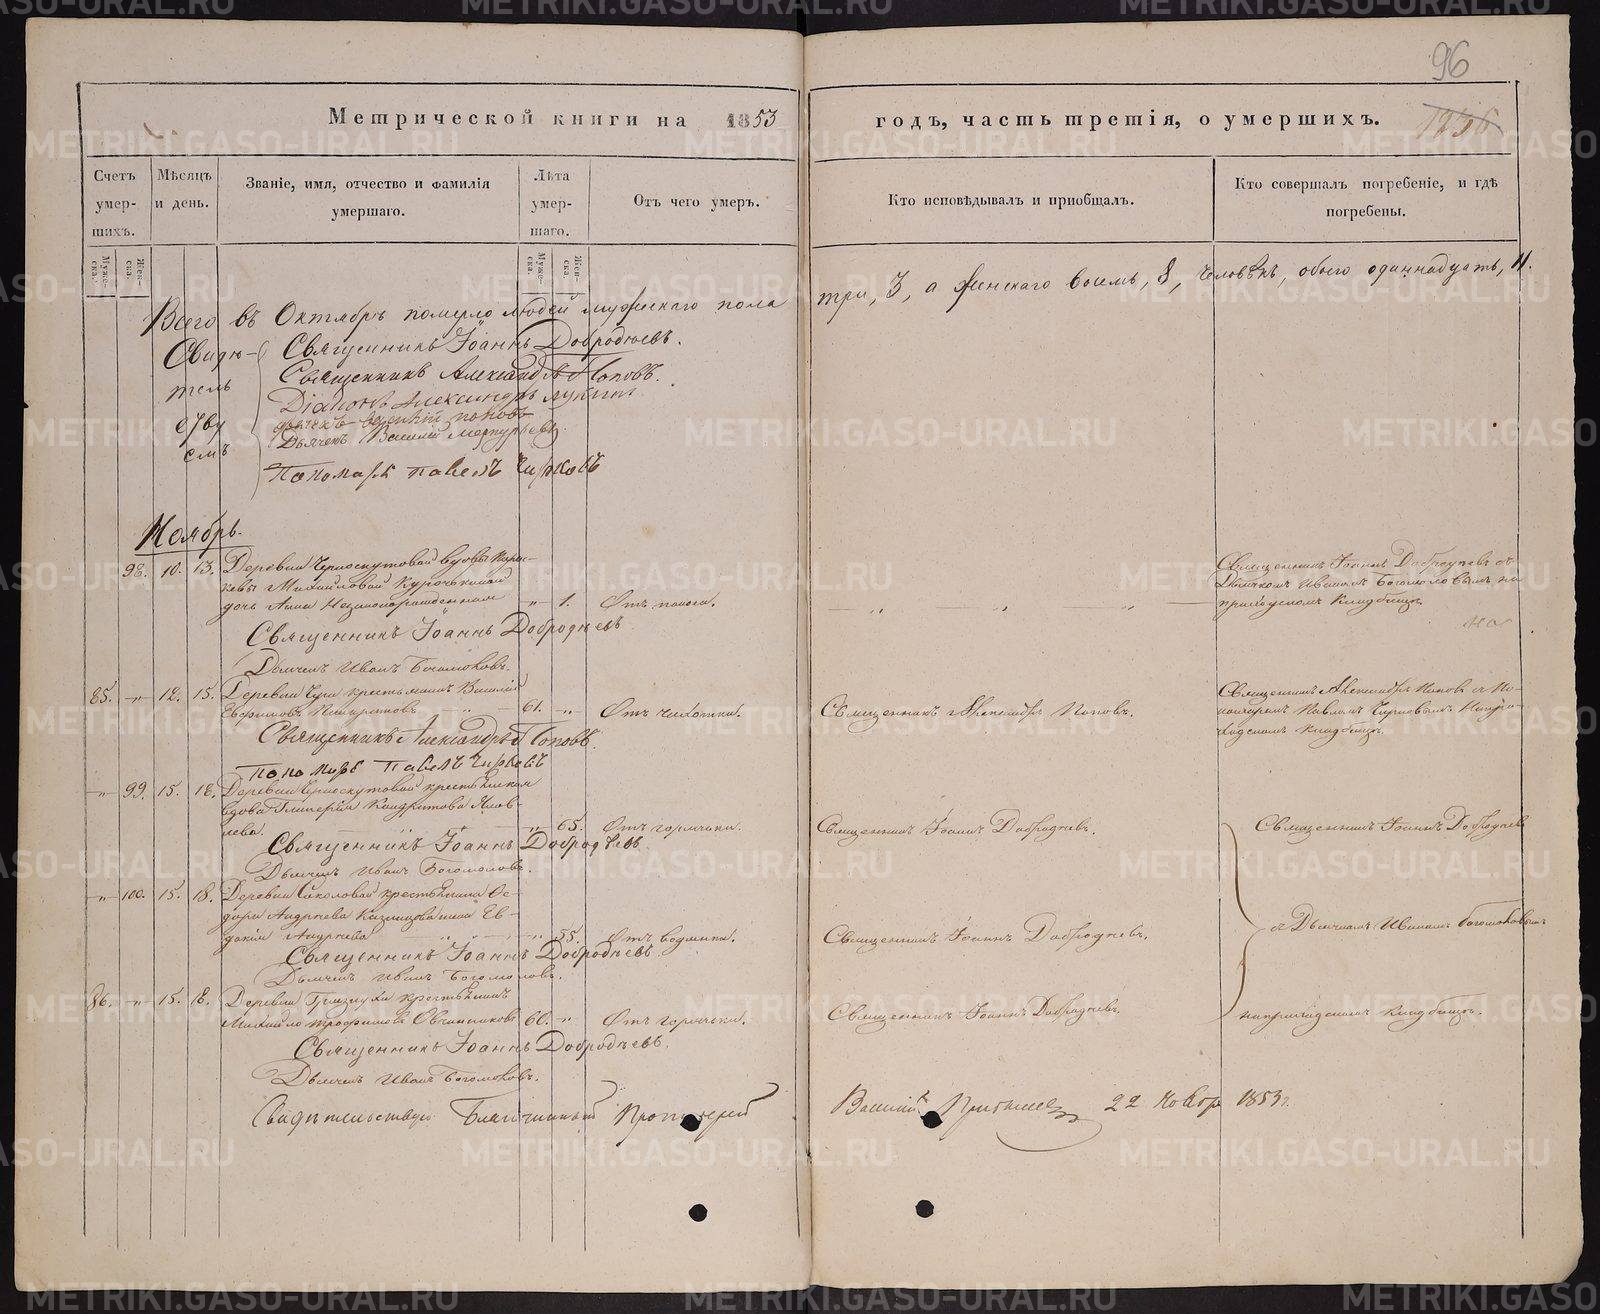 96
Метрической книги на 1853
годъ, часть третія, о умершихъ.
Счетъ умер-шихъ.
Мѣсяцъ и день.
Званіе, имя, отчество и фамилія умершаго.
Лѣта умер-шаго.
Отъ чего умеръ.
Кто исповѣдывалъ и пріобщалъ.
Кто совершалъ погребеніе, и гдѣ погребены.
Муже-ска.
Жен-ска.
Муже-ска.
Жен-ска.
Всего въ Октябрѣ померло людей мужескаго пола
три, 3, а женскаго восемь, 8, человѣкъ, обоего одиннадцать, 11.
Свидѣ-
тель
ству
емъ
Священникъ Іоаннъ Добродѣевъ.
Священникъ Александръ Поповъ.
Діаконъ Александръ
Дьячекъ Василій
Пономарь Павелъ Чирковъ
Ноябрь.
98. 10. 13. Деревни Черноскутовой вдовы Парас-
кевы Михайловой Курочкиной
дочь Анна Незаконорожденная „ 1. Отъ поноса.
Священникъ Іоаннъ Добродѣевъ съ
Дьячкомъ Иваномъ Богомоловымъ на
приходскомъ Кладбищѣ
Священникъ Іоаннъ Добродѣевъ
Дьячекъ Иванъ Богомоловъ.
85. „ 12. 15. Деревни крестьянинъ Василій
Евфимовъ 61. „ Отъ чихотки.
Священникъ Александръ Поповъ.
Священникъ Александръ Поповъ съ По-
номаремъ Павломъ Чирковымъ на при-
ходскомъ Кладбищѣ.
Священникъ Александръ Поповъ.
Пономарь Павелъ Чирковъ
„ 99. 15. 18. Деревни Черноскутовой крестьянская
вдова Гликерія Кондратова Яков-
лева. „ 65. Отъ горячки.
Священникъ Іоаннъ Добродѣевъ.
Священникъ Іоаннъ Добродѣевъ
Священникъ Іоаннъ Добродѣевъ
Дьячекъ Иванъ Богомоловъ.
„ 100. 15. 18. Деревни Соколовой крестьянина Ѳе-
дора Андреева жена Ев-
докія Андреева „ 55. Отъ водянки.
Священникъ Іоаннъ Добродѣевъ.
съ Дьячкомъ Иваномъ Богомоловымъ
Священникъ Іоаннъ Добродѣевъ
Дьячекъ Иванъ Богомоловъ.
86. „ 15. 18. Деревни Грязнухи крестьянинъ
Михайло Трофимовъ Овчинниковъ 60. „ Отъ горячки.
Священникъ Іоаннъ Добродѣевъ.
на приходскомъ Кладбищѣ.
Священникъ Іоаннъ Добродѣевъ.
Дьячекъ Иванъ Богомоловъ.
Свидѣтельствую Благочинный Протоіерей
Василій 22 Ноябр 1853 г.
METRIKI.GASO-URAL.RU